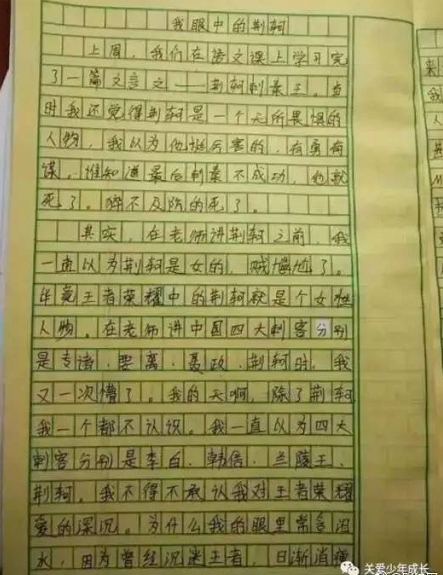 我眼中的荆轲
上周，我们在语文课上学习完
了一篇文言文——荆轲刺秦王。当
时我还觉得荆轲是一个无所畏惧的
人物，我以为他挺厉害的，有勇有
谋。谁知道最后刺秦不成功，他就
死了。猝不及防的死了。
其实，在老师讲荆轲之前，我
一直以为荆轲是女的，贼尴尬了。
毕竟王者荣耀中的荆轲就是个女性
人物。在老师讲中国四大刺客分别
是专诸、要离、聂政、荆轲时，我
又一次懵了。我的天啊，除了荆轲
我一个都不认识。我一直以为四大
刺客分别是李白、韩信、兰陵王、
荆轲。我不得不承认我对王者荣耀
爱的深沉。为什么我的眼里常含泪
水，因为曾经沉迷王者，日渐消瘦
关爱少年成长